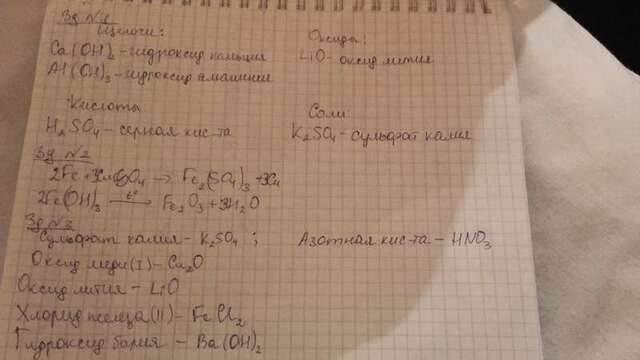 Зд №1
Щёлочи: Оксиды:
Ca(OH)2 - гидроксид кальция LiO - оксид лития
Al(OH)3 - гидроксид алюминия
Кислоты Соли
H2SO4 - серная кис-та K2SO4 - сульфат калия
Зд №2
2Fe + 3CuSO4 → Fe2(SO4)3 + 3Cu
2Fe(OH)3 t° → Fe2O3 + 3H2O
Зд №3
Сульфат калия - K2SO4 ; Азотная кис-та - HNO3
Оксид меди(I) - Cu2O
Оксид лития - LiO
Хлорид железа(II) - FeCl2
Гидроксид бария - Ba(OH)2